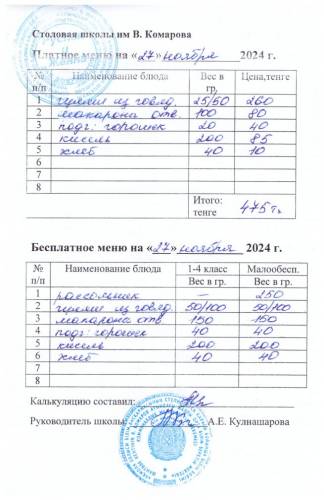 Столовая школы им В. Комарова
Платное меню на «27» ноября 2024 г.
№ п/п Наименование блюда Вес в гр, Цена,тенге
1 гуляш из говяд. 25/50 260
2 макароны отв. 100 80
3 подг: горошек 20 40
4 кисель 200 85
5 хлеб 40 10
6
7
8
Итого: тенге 475 тг
Бесплатное меню на «27» ноября 2024 г.
№ п/п Наименование блюда 1-4 класс Малообесп.
Вес в гр. Вес в гр.
1 рассольник — 250
2 гуляш из говяд. 50/100 50/100
3 макароны отв 150 150
4 подг: горошек 40 40
5 кисель 200 200
6 хлеб 40 40
7
8
Калькуляцию составил:
Руководитель школы: А.Е. Кулнашарова